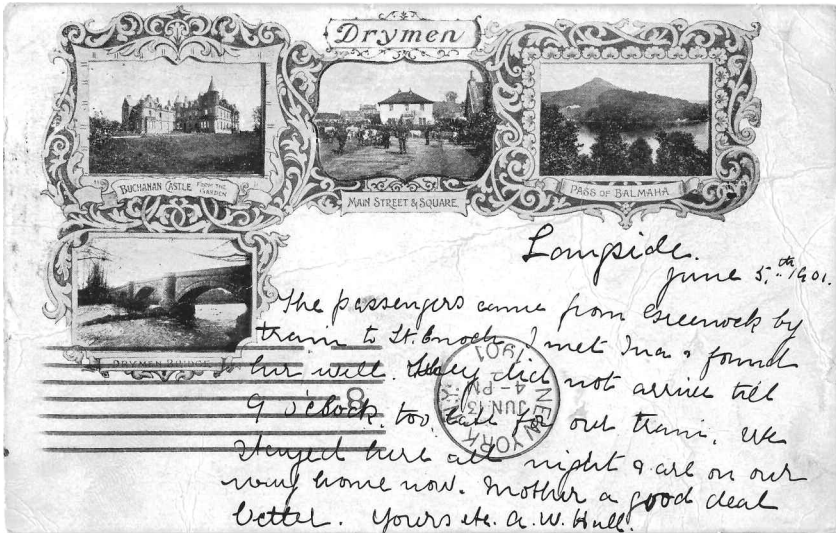 Drymen
BUCHANAN CASTLE FROM THE GARDEN
MAIN STREET & SQUARE
PASS OF BALMAHA
DRYMEN BRIDGE
Langside.
June 5th 1901.
The passengers came from Greenock by
train to St. Enoch I met Ina & found
her well. They did not arrive till
9 o'clock, too late for our train. We
stayed here all night & are on our
way home now. Mother a good deal
better. Yours etc. A. W. Hall.
NEW YORK
JUN 13
4-PM
1901
8